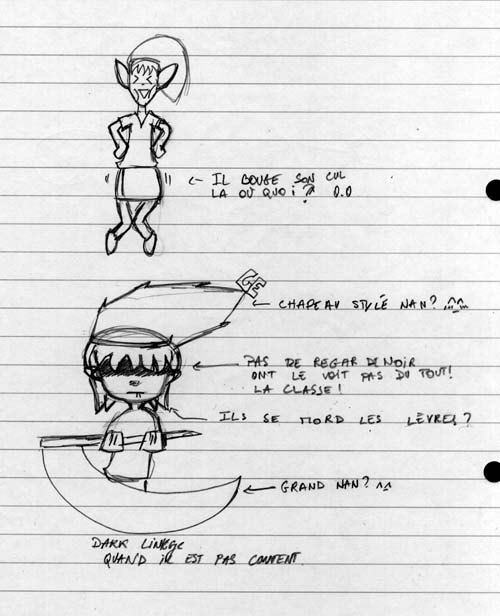 ← IL BOUGE SON CUL
LA OU QUOI ? O.O
GE
← CHAPEAU STYLÉ NAN? ^^
← PAS DE REGAR DE NOIR
ONT LE VOIT PAS DU TOUT!
LA CLASSE!
ILS SE MORD LES LÈVRES?
← GRAND NAN? ^^
DARK
QUAND IL EST PAS CONTENT.